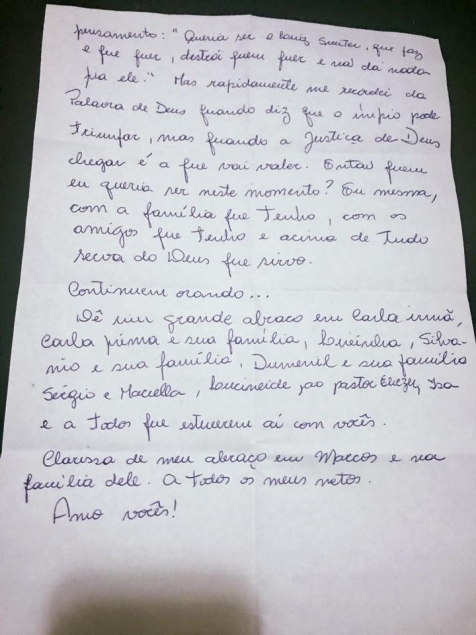 pensamento: "Queria ser o Luiz Sumter, que faz
e que quer, destrói quem quer e não dá nada
pra ele." Mas rapidamente me recordei da
Palavra de Deus quando diz que o ímpio pode
triunfar, mas quando a Justiça de Deus
chegar é a que vai valer. Então quem
eu queria ser neste momento? Eu mesma,
com a família que tenho, com os
amigos que tenho e acima de Tudo
serva do Deus que sirvo.
Continuem orando...
Dê um grande abraço em Carla irmã,
Carla prima e sua família, Lucinha, Silva-
nio e sua família, Dumenil e sua família
Sérgio e Marcella, Lucineide, ao pastor Eliezer, Isa
e a Todos que estiverem aí com vocês.
Clarissa de meu abraço em Marcos e na
família dele. A Todos os meus netos.
Amo vocês!